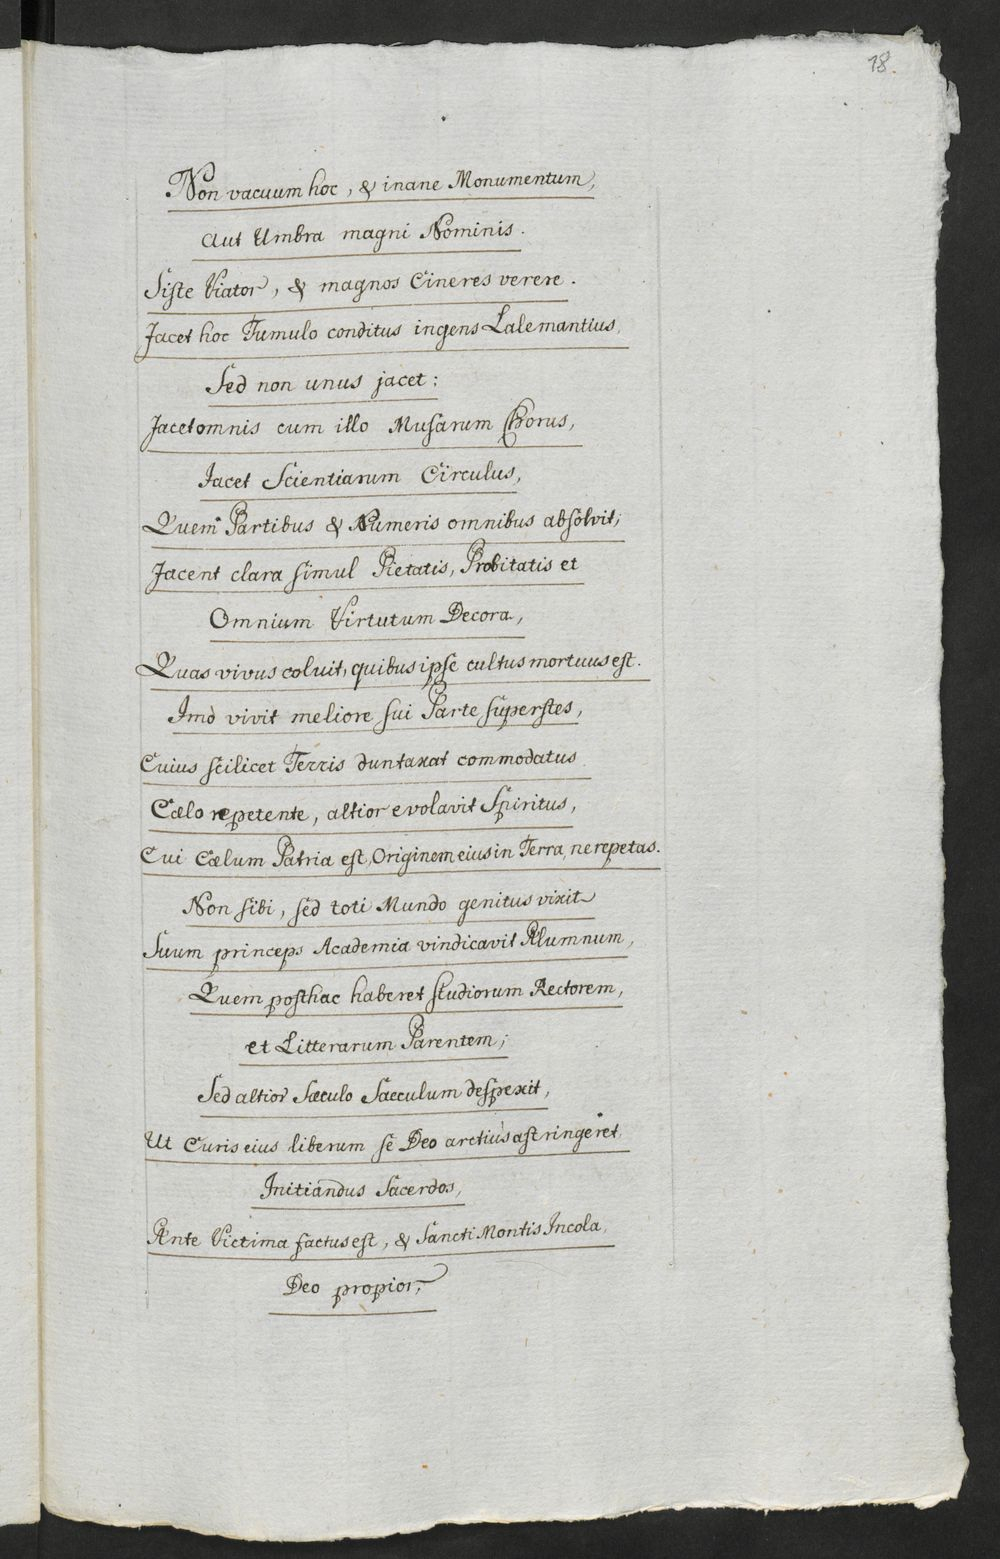 18.
Non vacuum hoc, & inane Monumentum,
Aut Umbra magni Nominis.
Siste Viator, & magnos Cineres verere.
Jacet hoc Tumulo conditus ingens Lalemantius,
Sed non unus jacet:
Jacet omnis cum illo Musarum Chorus,
Jacet Scientiarum Circulus,
Quem Partibus & Numeris omnibus absolvit,
Jacent clara simul Pietatis, Probitatis et
Omnium Virtutum Decora,
Quas vivus coluit, quibus ipse cultus mortuus est.
Imò vivit meliore sui Parte superstes,
Cuius scilicet Terris duntaxat commodatus
Cælo repetente, altior evolavit Spiritus,
Cui Cælum Patria est, Originem eius in Terra, ne repetas.
Non sibi, sed toti Mundo genitus vixit
Suum princeps Academia vindicavit Alumnum,
Quem posthac haberet studiorum Rectorem,
et Litterarum Parentem;
Sed altior Sæculo Saeculum despexit,
Ut Curis eius liberum se Deo arctius astringeret,
Initiandus Sacerdos,
Ante Victima factus est, & Sancti Montis Incola,
Deo propior,